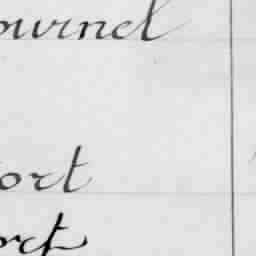 ournel
ort
ort